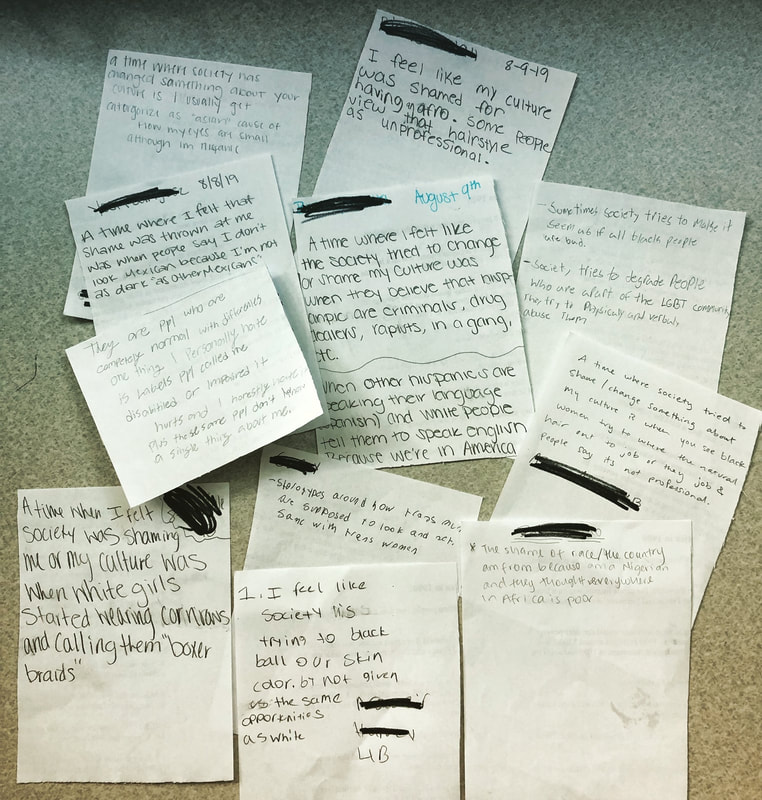 a time where society has
changed something about your
culture is I usually get
catergorize as "asian" cause of
how my eyes are small
although im hispanic
8-9-19
I feel like my culture
was shamed for
having afro. some people
view that hairstyle
as unprofessional.
8/8/19
A time where I felt that
shame was thrown at me
was when people say I don't
look Mexican because I'm not
as dark "as other Mexicans"
August 9th
A time where i felt like
the society tried to change
or shame my culture was
when they believe that hisp-
anpic are criminals, drug
dealers, rapists, in a gang,
etc.
when other hispanics are
speaking their language
(spanish) and white people
tell them to speak english
Because we're in America
- Sometimes society tries to make it
seem as if all black people
are bad.
- Society, tries to degrade People
who are apart of the LGBT community
They try to Physically and verbaly
abuse Them
They are ppl who are
completely normal with differences
one thing I personally hate
is labels ppl called me
disabilited or impaired it
hurts and I honestly
plus these same ppl don't know
a single thing about me.
A time where society tried to
shame/change something about
my culture is when you see black
women try to where the natural
hair out to job or they job &
People say its not professional.
B
A time when I felt
society was shaming
me or my culture was
when white girls
started wearing cornrows
and calling them "boxer
braids"
- Stereotypes around how trans
are supposed to look and act.
Same with trans women
1. I feel like
Society is
trying to black
ball our skin
color. by not given
us the same
opportunities
as white
4B
* The shame of race/the country
am from because am a Nigerian
and they thought everywhere
in Africa is poor